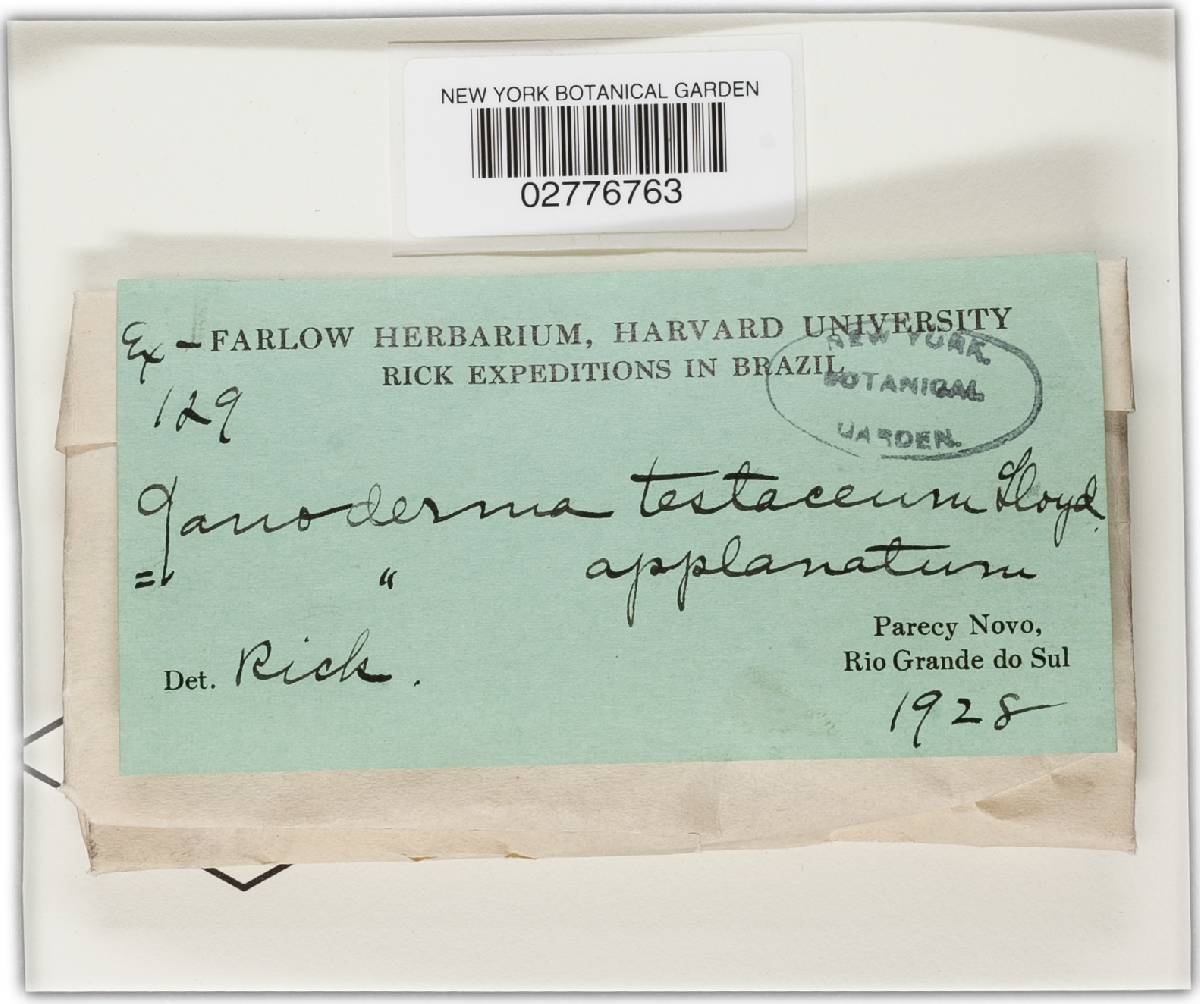 NEW YORK BOTANICAL GARDEN
02776763
Ex – FARLOW HERBARIUM, HARVARD UNIVERSITY
RICK EXPEDITIONS IN BRAZIL
NEW YORK
BOTANICAL
GARDEN.
129
Ganoderma testaceum Lloyd
= " applanatum
Parecy Novo,
Rio Grande do Sul
Det. Rick.
1928